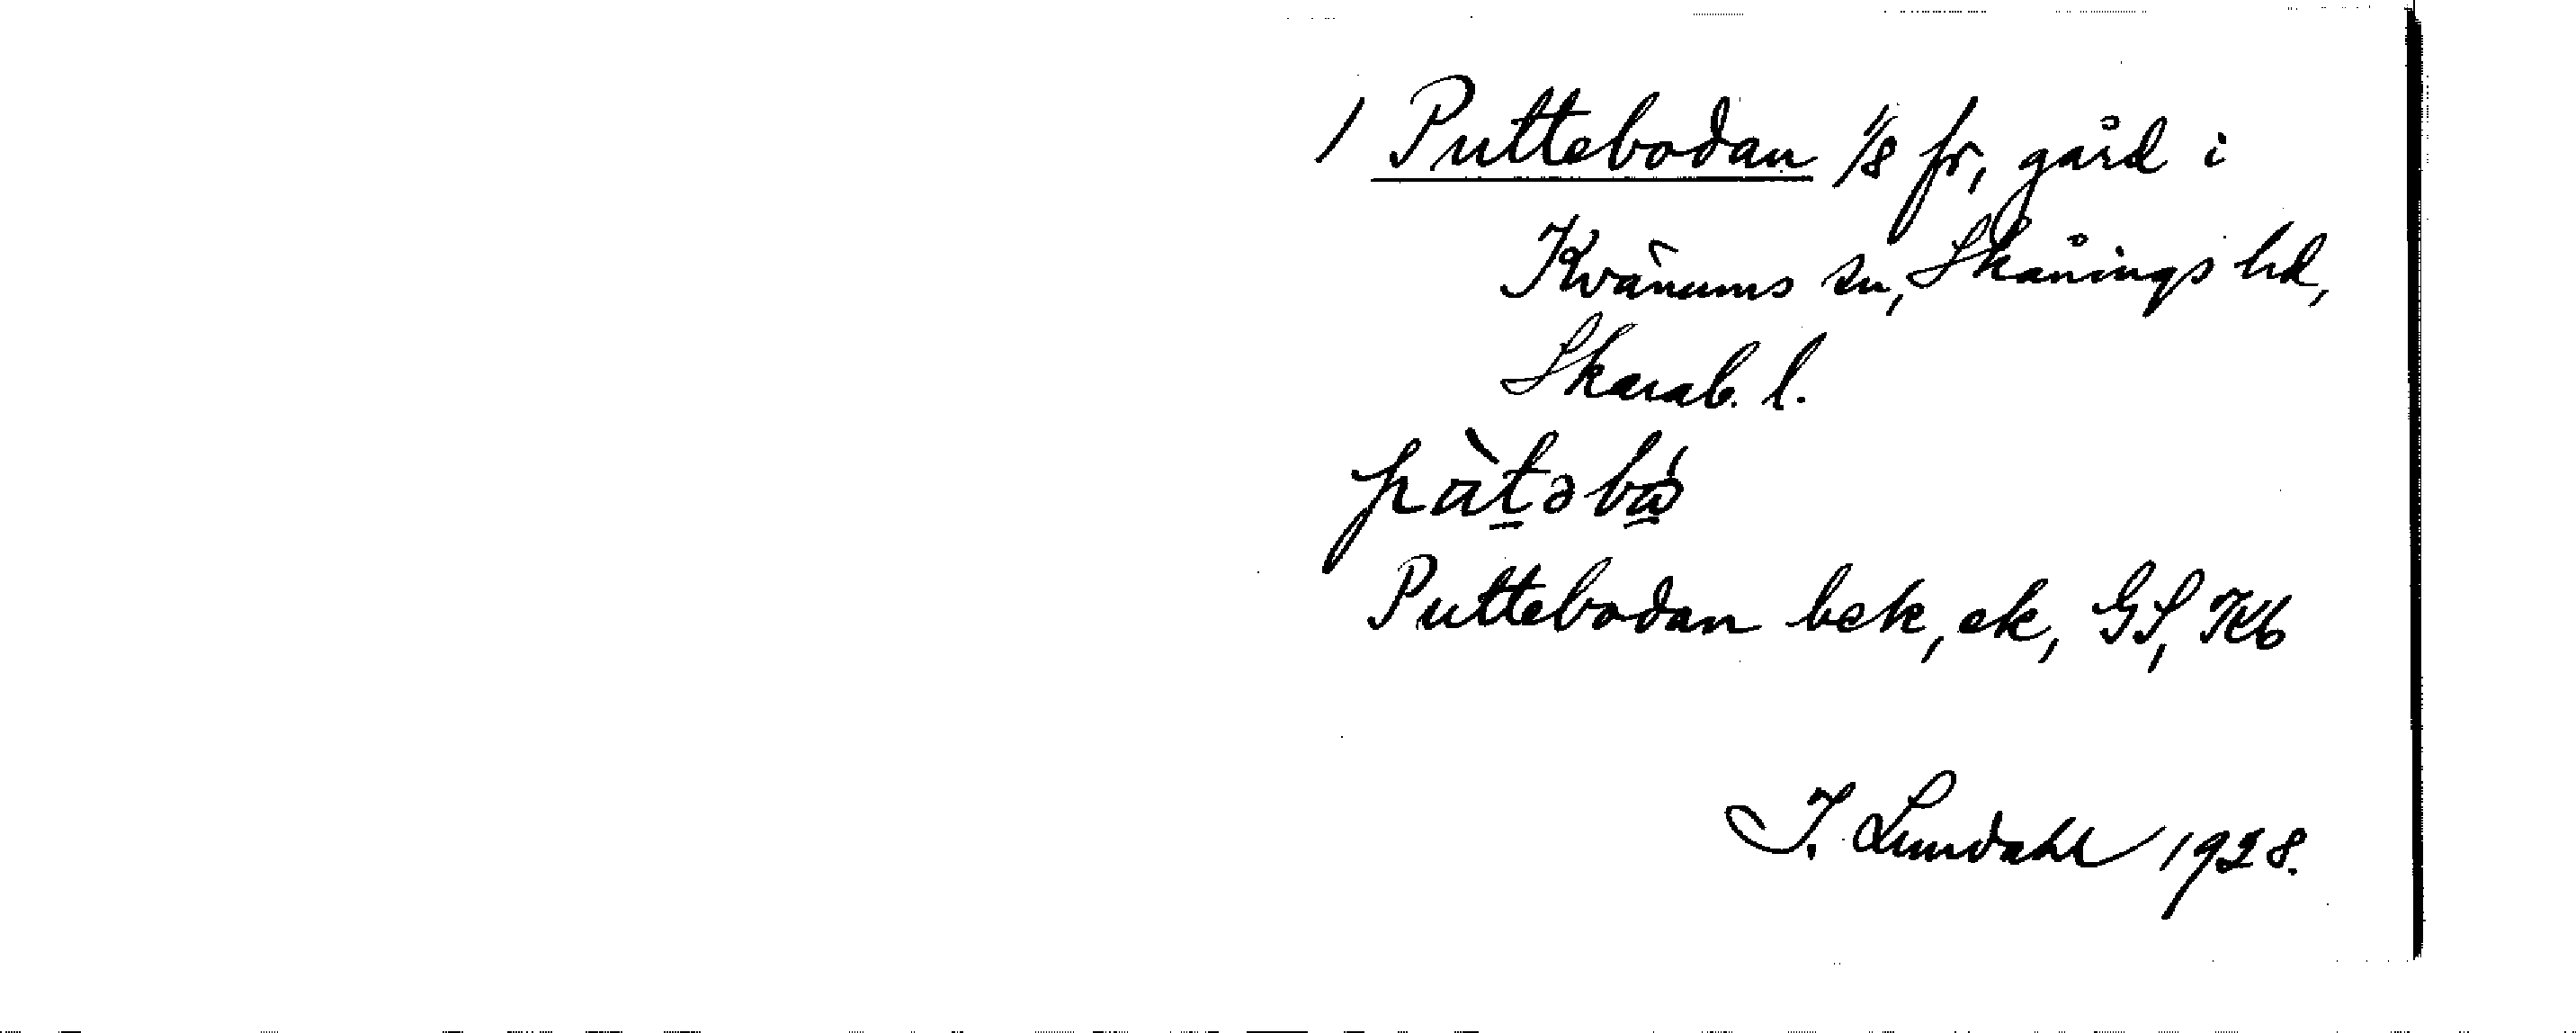 1 Puttebodan 1/8 fr, gård i
Kvänums sn, Skånings hd,
Skarab. l.
pàt̠əbá̠
Puttebodan bek, ek, GS, Kb
I. Lundahl 1928.